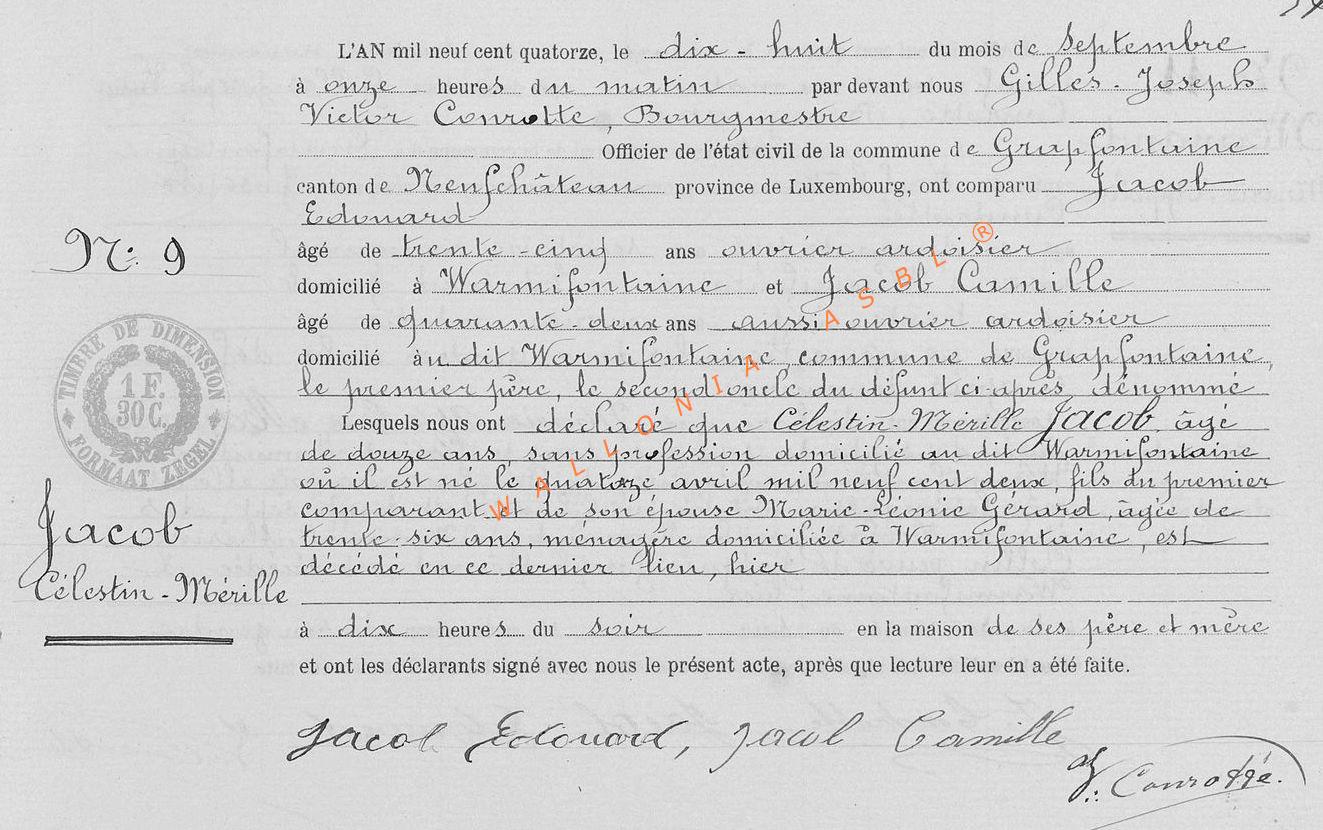 L'AN mil neuf cent quatorze, le dix-huit du mois de Septembre
à onze heures du matin par devant nous Gilles-Joseph
Victor Conrotte, Bourgmestre
Officier de l'état civil de la commune de Grapfontaine
canton de Neufchâteau province de Luxembourg, ont comparu Jacob
Edouard
âgé de trente-cinq ans ouvrier ardoisier
domicilié à Warmifontaine et Jacob Camille
âgé de quarante-deux ans aussi ouvrier ardoisier
domicilié àu dit Warmifontaine, commune de Grapfontaine,
le premier père, le second oncle du défunt ci-après dénommé
Lesquels nous ont déclaré que Célestin-Mérille Jacob, âgé
de douze ans, sans profession domicilié au dit Warmifontaine
où il est né le quatorze avril mil neuf cent deux, fils du premier
comparant et de son épouse Marie-Léonie Gérard, âgée de
trente-six ans, ménagère domiciliée à Warmifontaine, est
décédé en ce dernier lieu, hier
à dix heures du soir en la maison de ses père et mère
et ont les déclarants signé avec nous le présent acte, après que lecture leur en a été faite.
Jacob Edouard, Jacob Camille
V. Conrotte.
N: 9
TIMBRE DE DIMENSION
1 F.
30 C.
FORMAAT ZEGEL
Jacob
Célestin-Mérille
WALLONIA ASBL ®